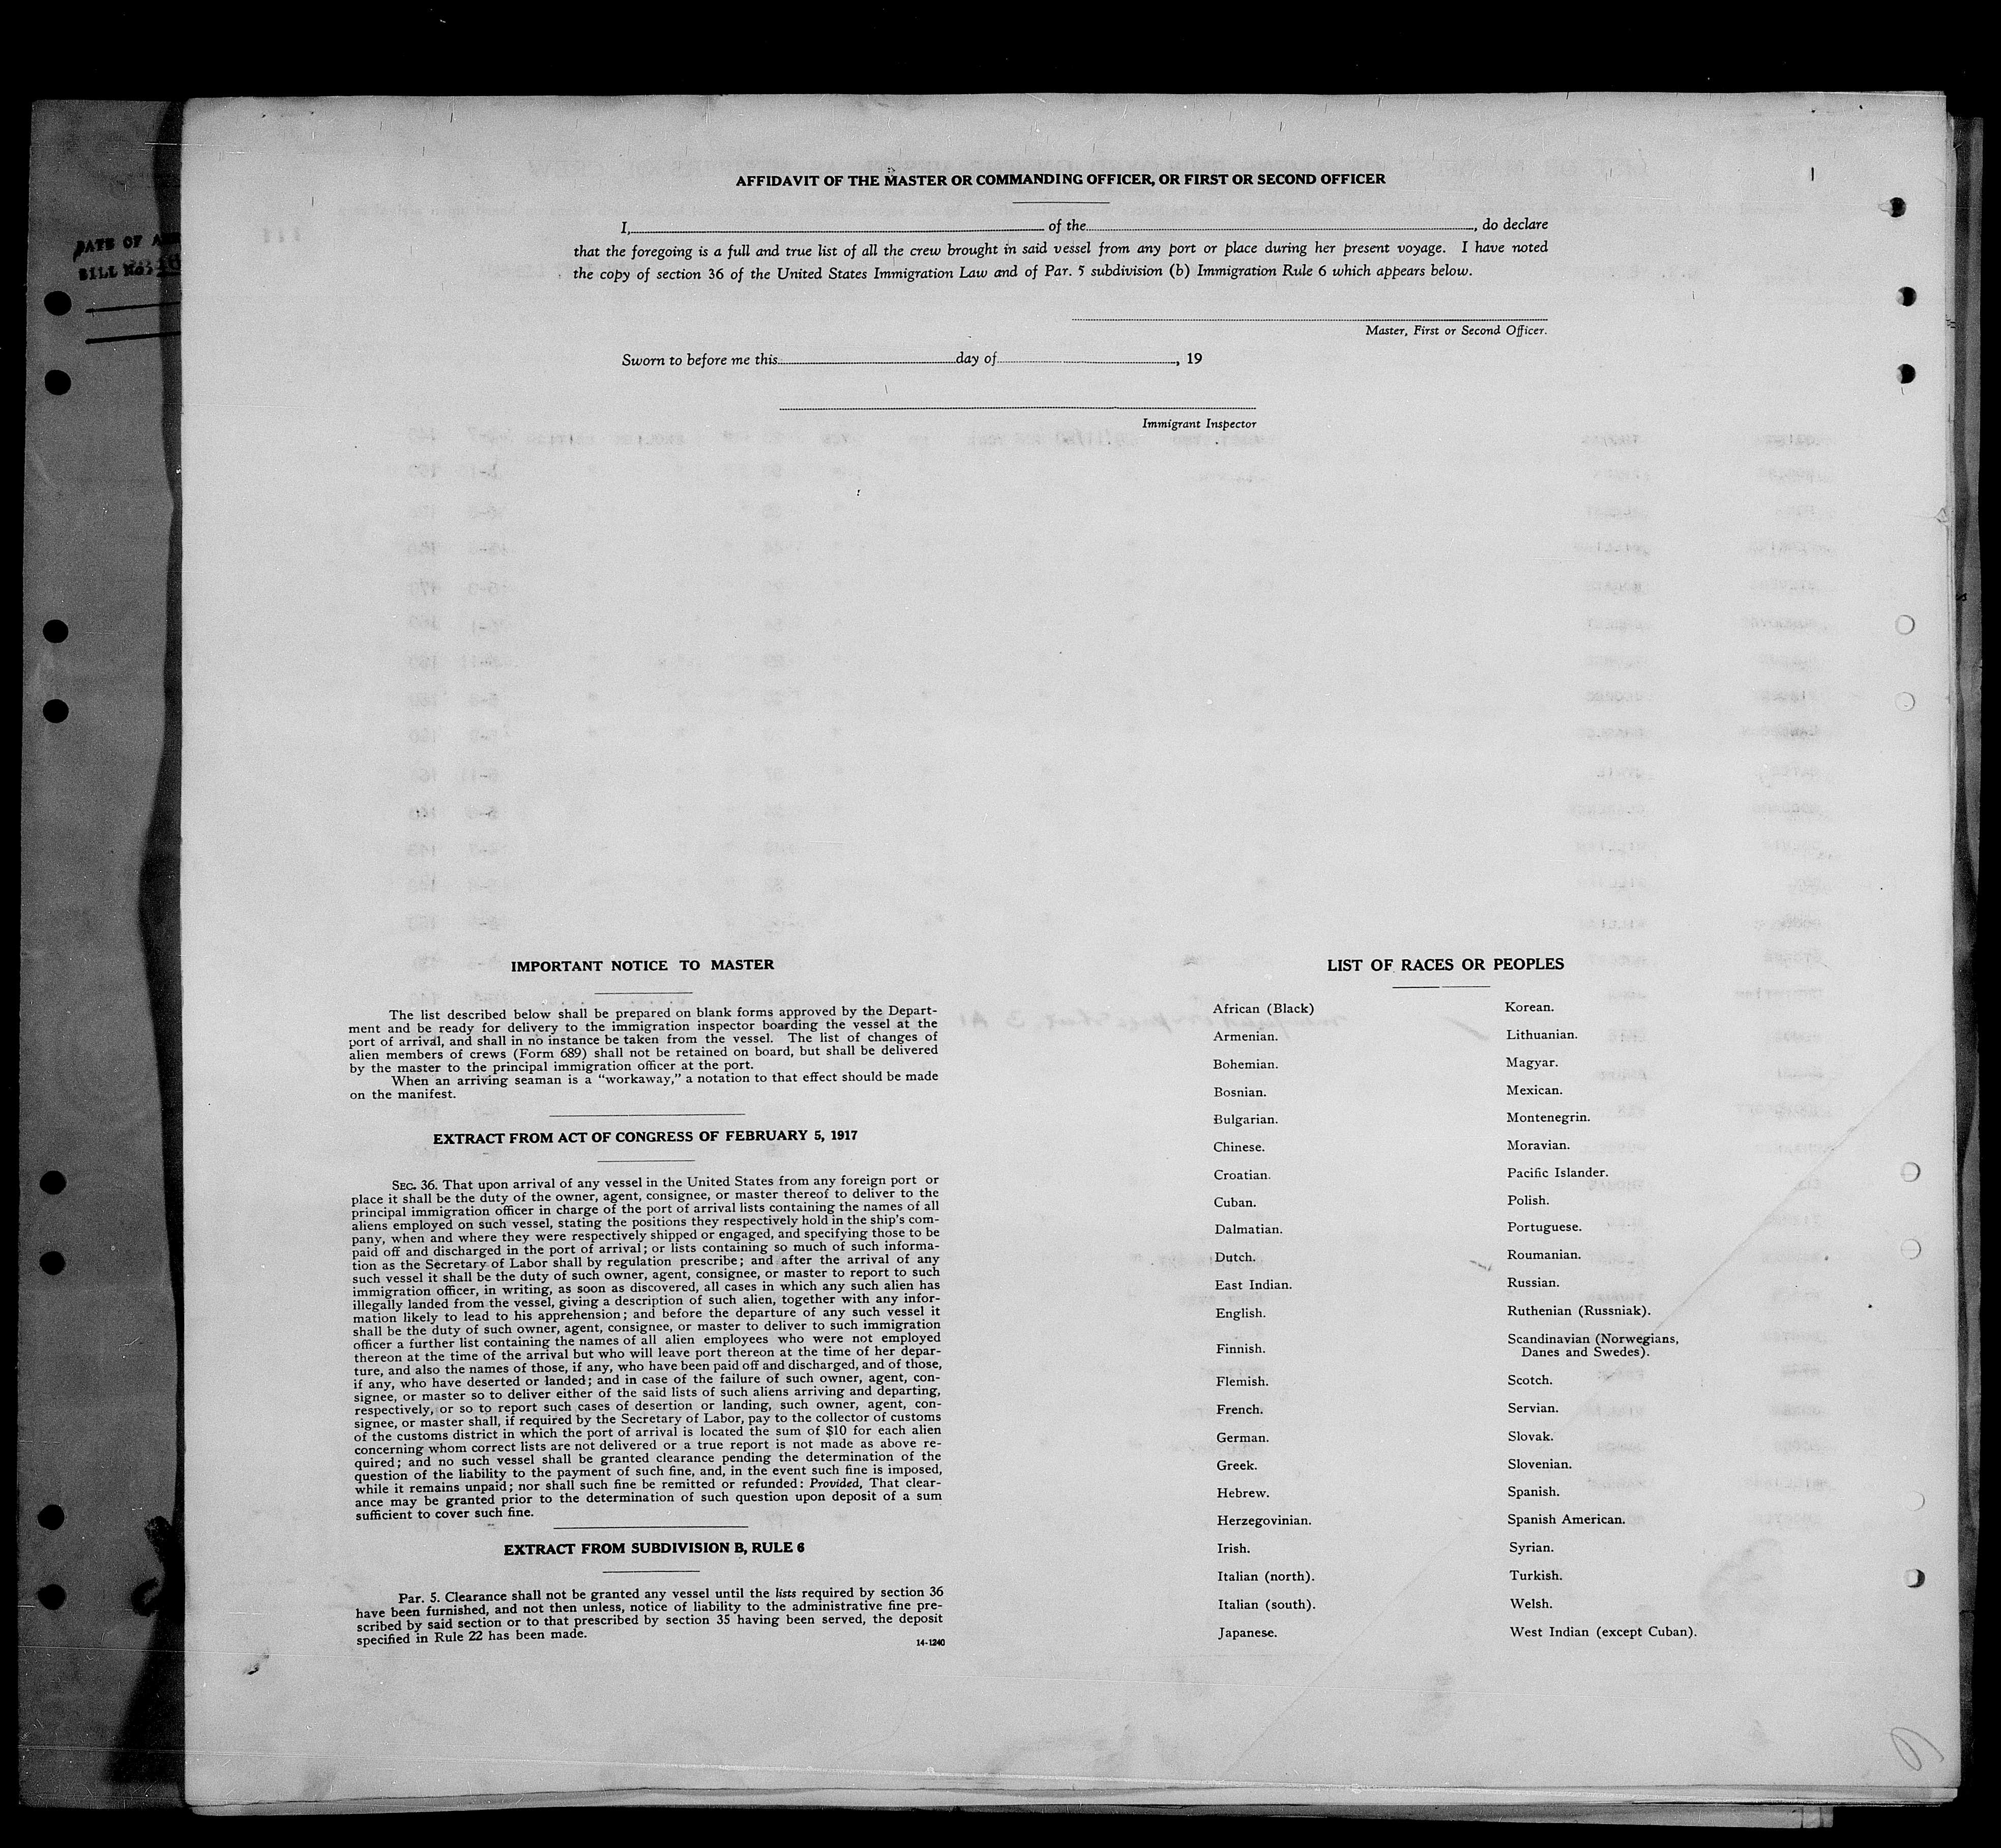 AFFIDAVIT OF THE MASTER OR COMMANDING OFFICER, OR FIRST OR SECOND OFFICER
I, of the , do declare
that the foregoing is a full and true list of all the crew brought in said vessel from any port or place during her present voyage. I have noted
the copy of section 36 of the United States Immigration Law and of Par. 5 subdivision (b) Immigration Rule 6 which appears below.
Master, First or Second Officer.
Sworn to before me this day of , 19
Immigrant Inspector
DATE OF
BILL No.
IMPORTANT NOTICE TO MASTER
The list described below shall be prepared on blank forms approved by the Depart-
ment and be ready for delivery to the immigration inspector boarding the vessel at the
port of arrival, and shall in no instance be taken from the vessel. The list of changes of
alien members of crews (Form 689) shall not be retained on board, but shall be delivered
by the master to the principal immigration officer at the port.
When an arriving seaman is a "workaway," a notation to that effect should be made
on the manifest.
EXTRACT FROM ACT OF CONGRESS OF FEBRUARY 5, 1917
SEC. 36. That upon arrival of any vessel in the United States from any foreign port or
place it shall be the duty of the owner, agent, consignee, or master thereof to deliver to the
principal immigration officer in charge of the port of arrival lists containing the names of all
aliens employed on such vessel, stating the positions they respectively hold in the ship's com-
pany, when and where they were respectively shipped or engaged, and specifying those to be
paid off and discharged in the port of arrival; or lists containing so much of such informa-
tion as the Secretary of Labor shall by regulation prescribe; and after the arrival of any
such vessel it shall be the duty of such owner, agent, consignee, or master to report to such
immigration officer, in writing, as soon as discovered, all cases in which any such alien has
illegally landed from the vessel, giving a description of such alien, together with any infor-
mation likely to lead to his apprehension; and before the departure of any such vessel it
shall be the duty of such owner, agent, consignee, or master to deliver to such immigration
officer a further list containing the names of all alien employees who were not employed
thereon at the time of the arrival but who will leave port thereon at the time of her depar-
ture, and also the names of those, if any, who have been paid off and discharged, and of those,
if any, who have deserted or landed; and in case of the failure of such owner, agent, con-
signee, or master so to deliver either of the said lists of such aliens arriving and departing,
respectively, or so to report such cases of desertion or landing, such owner, agent, con-
signee, or master shall, if required by the Secretary of Labor, pay to the collector of customs
of the customs district in which the port of arrival is located the sum of $10 for each alien
concerning whom correct lists are not delivered or a true report is not made as above re-
quired; and no such vessel shall be granted clearance pending the determination of the
question of the liability to the payment of such fine, and, in the event such fine is imposed,
while it remains unpaid; nor shall such fine be remitted or refunded: Provided, That clear-
ance may be granted prior to the determination of such question upon deposit of a sum
sufficient to cover such fine.
EXTRACT FROM SUBDIVISION B, RULE 6
Par. 5. Clearance shall not be granted any vessel until the lists required by section 36
have been furnished, and not then unless, notice of liability to the administrative fine pre-
scribed by said section or to that prescribed by section 35 having been served, the deposit
specified in Rule 22 has been made.
14-1240
LIST OF RACES OR PEOPLES
African (Black)
Armenian.
Bohemian.
Bosnian.
Bulgarian.
Chinese.
Croatian.
Cuban.
Dalmatian.
Dutch.
East Indian.
English.
Finnish.
Flemish.
French.
German.
Greek.
Hebrew.
Herzegovinian.
Irish.
Italian (north).
Italian (south).
Japanese.
Korean.
Lithuanian.
Magyar.
Mexican.
Montenegrin.
Moravian.
Pacific Islander.
Polish.
Portuguese.
Roumanian.
Russian.
Ruthenian (Russniak).
Scandinavian (Norwegians,
Danes and Swedes).
Scotch.
Servian.
Slovak.
Slovenian.
Spanish.
Spanish American.
Syrian.
Turkish.
Welsh.
West Indian (except Cuban).